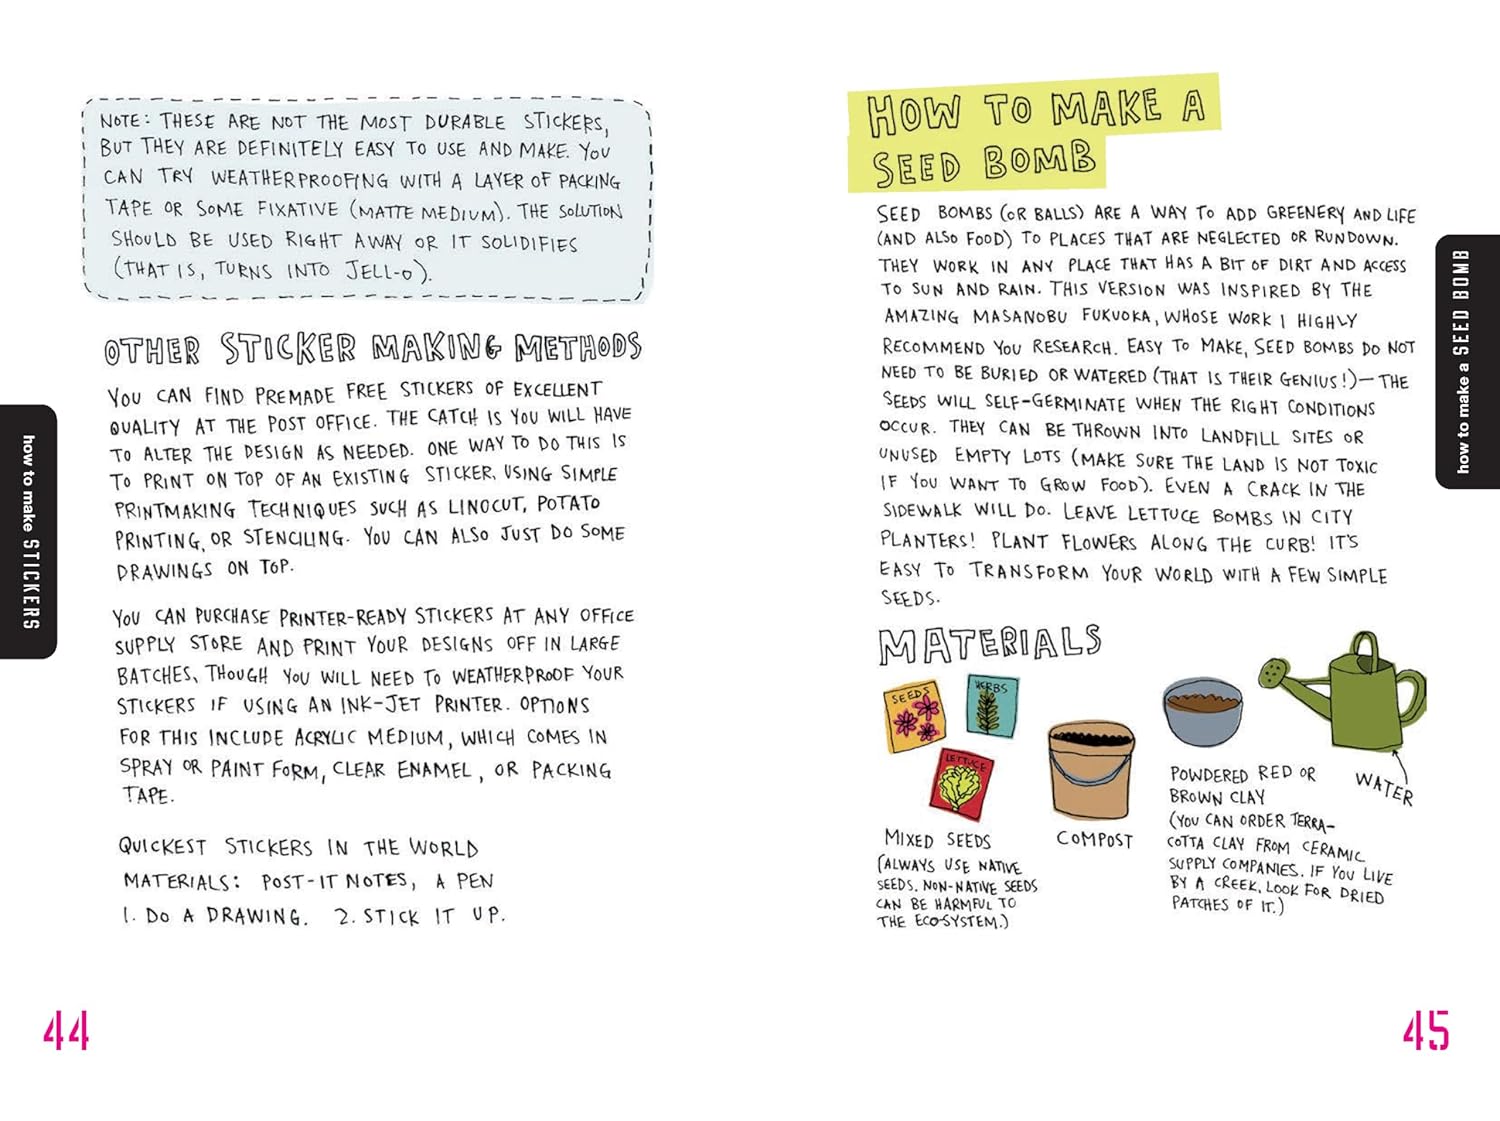 NOTE: THESE ARE NOT THE MOST DURABLE STICKERS,
BUT THEY ARE DEFINITELY EASY TO USE AND MAKE. YOU
CAN TRY WEATHERPROOFING WITH A LAYER OF PACKING
TAPE OR SOME FIXATIVE (MATTE MEDIUM). THE SOLUTION
SHOULD BE USED RIGHT AWAY OR IT SOLIDIFIES
(THAT IS, TURNS INTO JELL-O).
OTHER STICKER MAKING METHODS
YOU CAN FIND PREMADE FREE STICKERS OF EXCELLENT
QUALITY AT THE POST OFFICE. THE CATCH IS YOU WILL HAVE
TO ALTER THE DESIGN AS NEEDED. ONE WAY TO DO THIS IS
TO PRINT ON TOP OF AN EXISTING STICKER, USING SIMPLE
PRINTMAKING TECHNIQUES SUCH AS LINOCUT, POTATO
PRINTING, OR STENCILING. YOU CAN ALSO JUST DO SOME
DRAWINGS ON TOP.
YOU CAN PURCHASE PRINTER-READY STICKERS AT ANY OFFICE
SUPPLY STORE AND PRINT YOUR DESIGNS OFF IN LARGE
BATCHES, THOUGH YOU WILL NEED TO WEATHERPROOF YOUR
STICKERS IF USING AN INK-JET PRINTER. OPTIONS
FOR THIS INCLUDE ACRYLIC MEDIUM, WHICH COMES IN
SPRAY OR PAINT FORM, CLEAR ENAMEL, OR PACKING
TAPE.
QUICKEST STICKERS IN THE WORLD
MATERIALS: POST-IT NOTES, A PEN
1. DO A DRAWING. 2. STICK IT UP.
how to make STICKERS
44
HOW TO MAKE A
SEED BOMB
SEED BOMBS (OR BALLS) ARE A WAY TO ADD GREENERY AND LIFE
(AND ALSO FOOD) TO PLACES THAT ARE NEGLECTED OR RUNDOWN.
THEY WORK IN ANY PLACE THAT HAS A BIT OF DIRT AND ACCESS
TO SUN AND RAIN. THIS VERSION WAS INSPIRED BY THE
AMAZING MASANOBU FUKUOKA, WHOSE WORK I HIGHLY
RECOMMEND YOU RESEARCH. EASY TO MAKE, SEED BOMBS DO NOT
NEED TO BE BURIED OR WATERED (THAT IS THEIR GENIUS!)—THE
SEEDS WILL SELF-GERMINATE WHEN THE RIGHT CONDITIONS
OCCUR. THEY CAN BE THROWN INTO LANDFILL SITES OR
UNUSED EMPTY LOTS (MAKE SURE THE LAND IS NOT TOXIC
IF YOU WANT TO GROW FOOD). EVEN A CRACK IN THE
SIDEWALK WILL DO. LEAVE LETTUCE BOMBS IN CITY
PLANTERS! PLANT FLOWERS ALONG THE CURB! IT'S
EASY TO TRANSFORM YOUR WORLD WITH A FEW SIMPLE
SEEDS.
MATERIALS
SEEDS
HERBS
LETTUCE
MIXED SEEDS
(ALWAYS USE NATIVE
SEEDS. NON-NATIVE SEEDS
CAN BE HARMFUL TO
THE ECOSYSTEM.)
COMPOST
POWDERED RED OR
BROWN CLAY
(YOU CAN ORDER TERRA-
COTTA CLAY FROM CERAMIC
SUPPLY COMPANIES. IF YOU LIVE
BY A CREEK, LOOK FOR DRIED
PATCHES OF IT.)
WATER
how to make a SEED BOMB
45